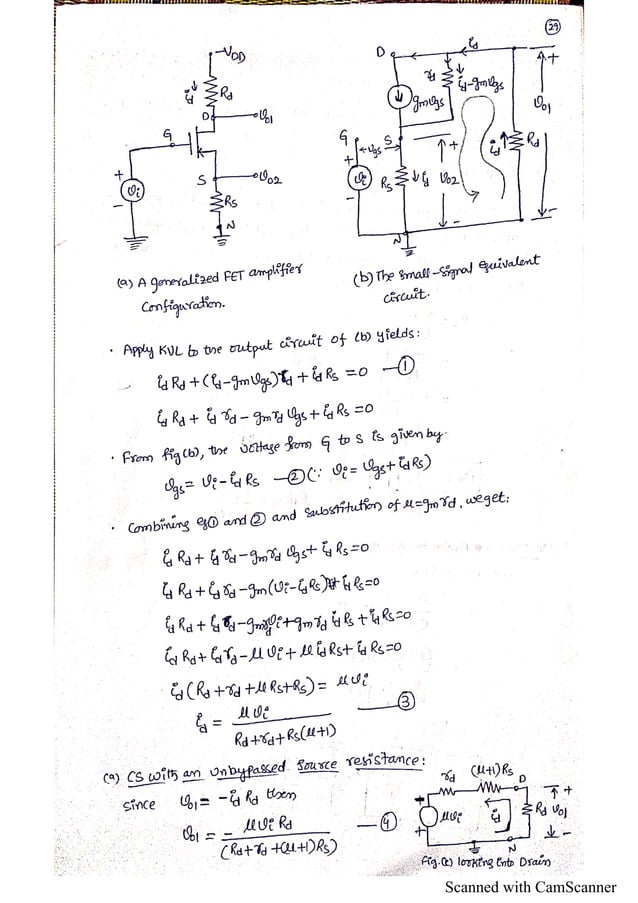 (29)
-VDD
id
Rd
D
vo1
G
S
vo2
+
vi
-
Rs
N
D
id
rd
id-gmvgs
gmvgs
+
vo1
-
G
S
vgs
+
vi
-
Rs
id
+
vo2
-
id
Rd
N
(a) A generalized FET amplifier
Configuration.
(b) The small-signal equivalent
circuit.
· Apply KVL to the output circuit of (b) yields:
id Rd + (id - gm vgs) rd + id Rs = 0 —①
id Rd + id rd - gm rd vgs + id Rs = 0
· From fig(b), the voltage from G to S is given by.
vgs = vi - id Rs —② (∵ vi = vgs + id Rs)
· Combining eq① and ② and substitution of μ=gm rd, we get:
id Rd + id rd - gm rd vgs + id Rs = 0
id Rd + id rd - gm (vi - id Rs) rd + id Rs = 0
id Rd + id rd - gm rd vi + gm rd id Rs + id Rs = 0
id Rd + id rd - μ vi + μ id Rs + id Rs = 0
id (Rd + rd + μ Rs + Rs) = μ vi
id = μ vi / Rd + rd + Rs (μ+1) —③
(a) CS with an unbypassed source resistance:
since vo1 = -id Rd then
vo1 = - μ vi Rd / (Rd + rd + (μ+1) Rs) —④
rd
(μ+1)Rs
D
-
μvi
+
id
Rd
+
vo1
-
N
Fig.(c) looking into Drain
Scanned with CamScanner